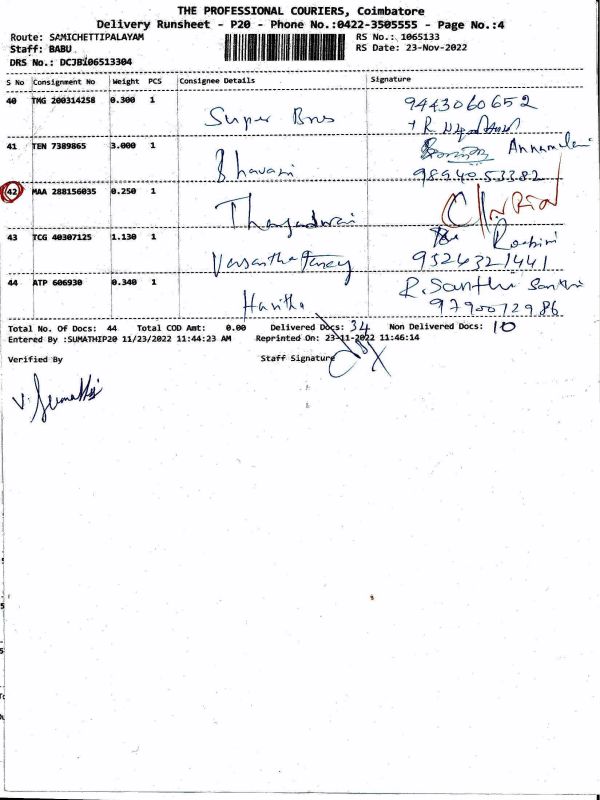 THE PROFESSIONAL COURIERS, Coimbatore
Delivery Runsheet - P20 - Phone No.:0422-3505555 - Page No.:4
Route: SAMICHETTIPALAYAM RS No.: 1065133
Staff: BABU RS Date: 23-Nov-2022
DRS No.: DCJB106513304
S No Consignment No Weight PCS Consignee Details Signature
40 TMG 200314258 0.300 1 Super Bros 9443060652
41 TEN 7389865 3.000 1 Bhavani Annamalai
9894053382
42 MAA 288156035 0.250 1 Thangadurai
43 TCG 40307125 1.130 1 Vasantha Fancy Rohini
9524321441
44 ATP 606930 0.340 1 Haritha R. Santhi
9790072986
Total No. Of Docs: 44 Total COD Amt: 0.00 Delivered Docs: 34 Non Delivered Docs: 10
Entered By :SUMATHIP20 11/23/2022 11:44:23 AM Reprinted On: 23-11-2022 11:46:14
Verified By Staff Signature
V. Sumathi